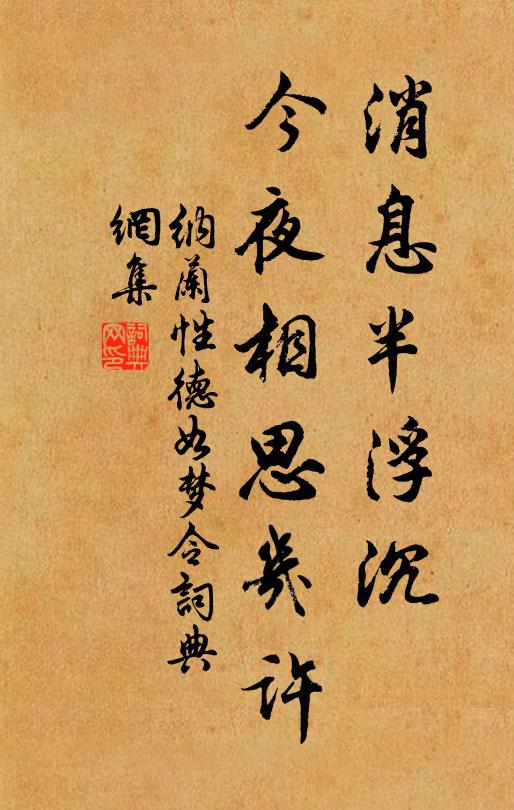 消息半浮沉
今夜相思幾许
纳蘭性德如梦令詞典
網集
詞典
网印